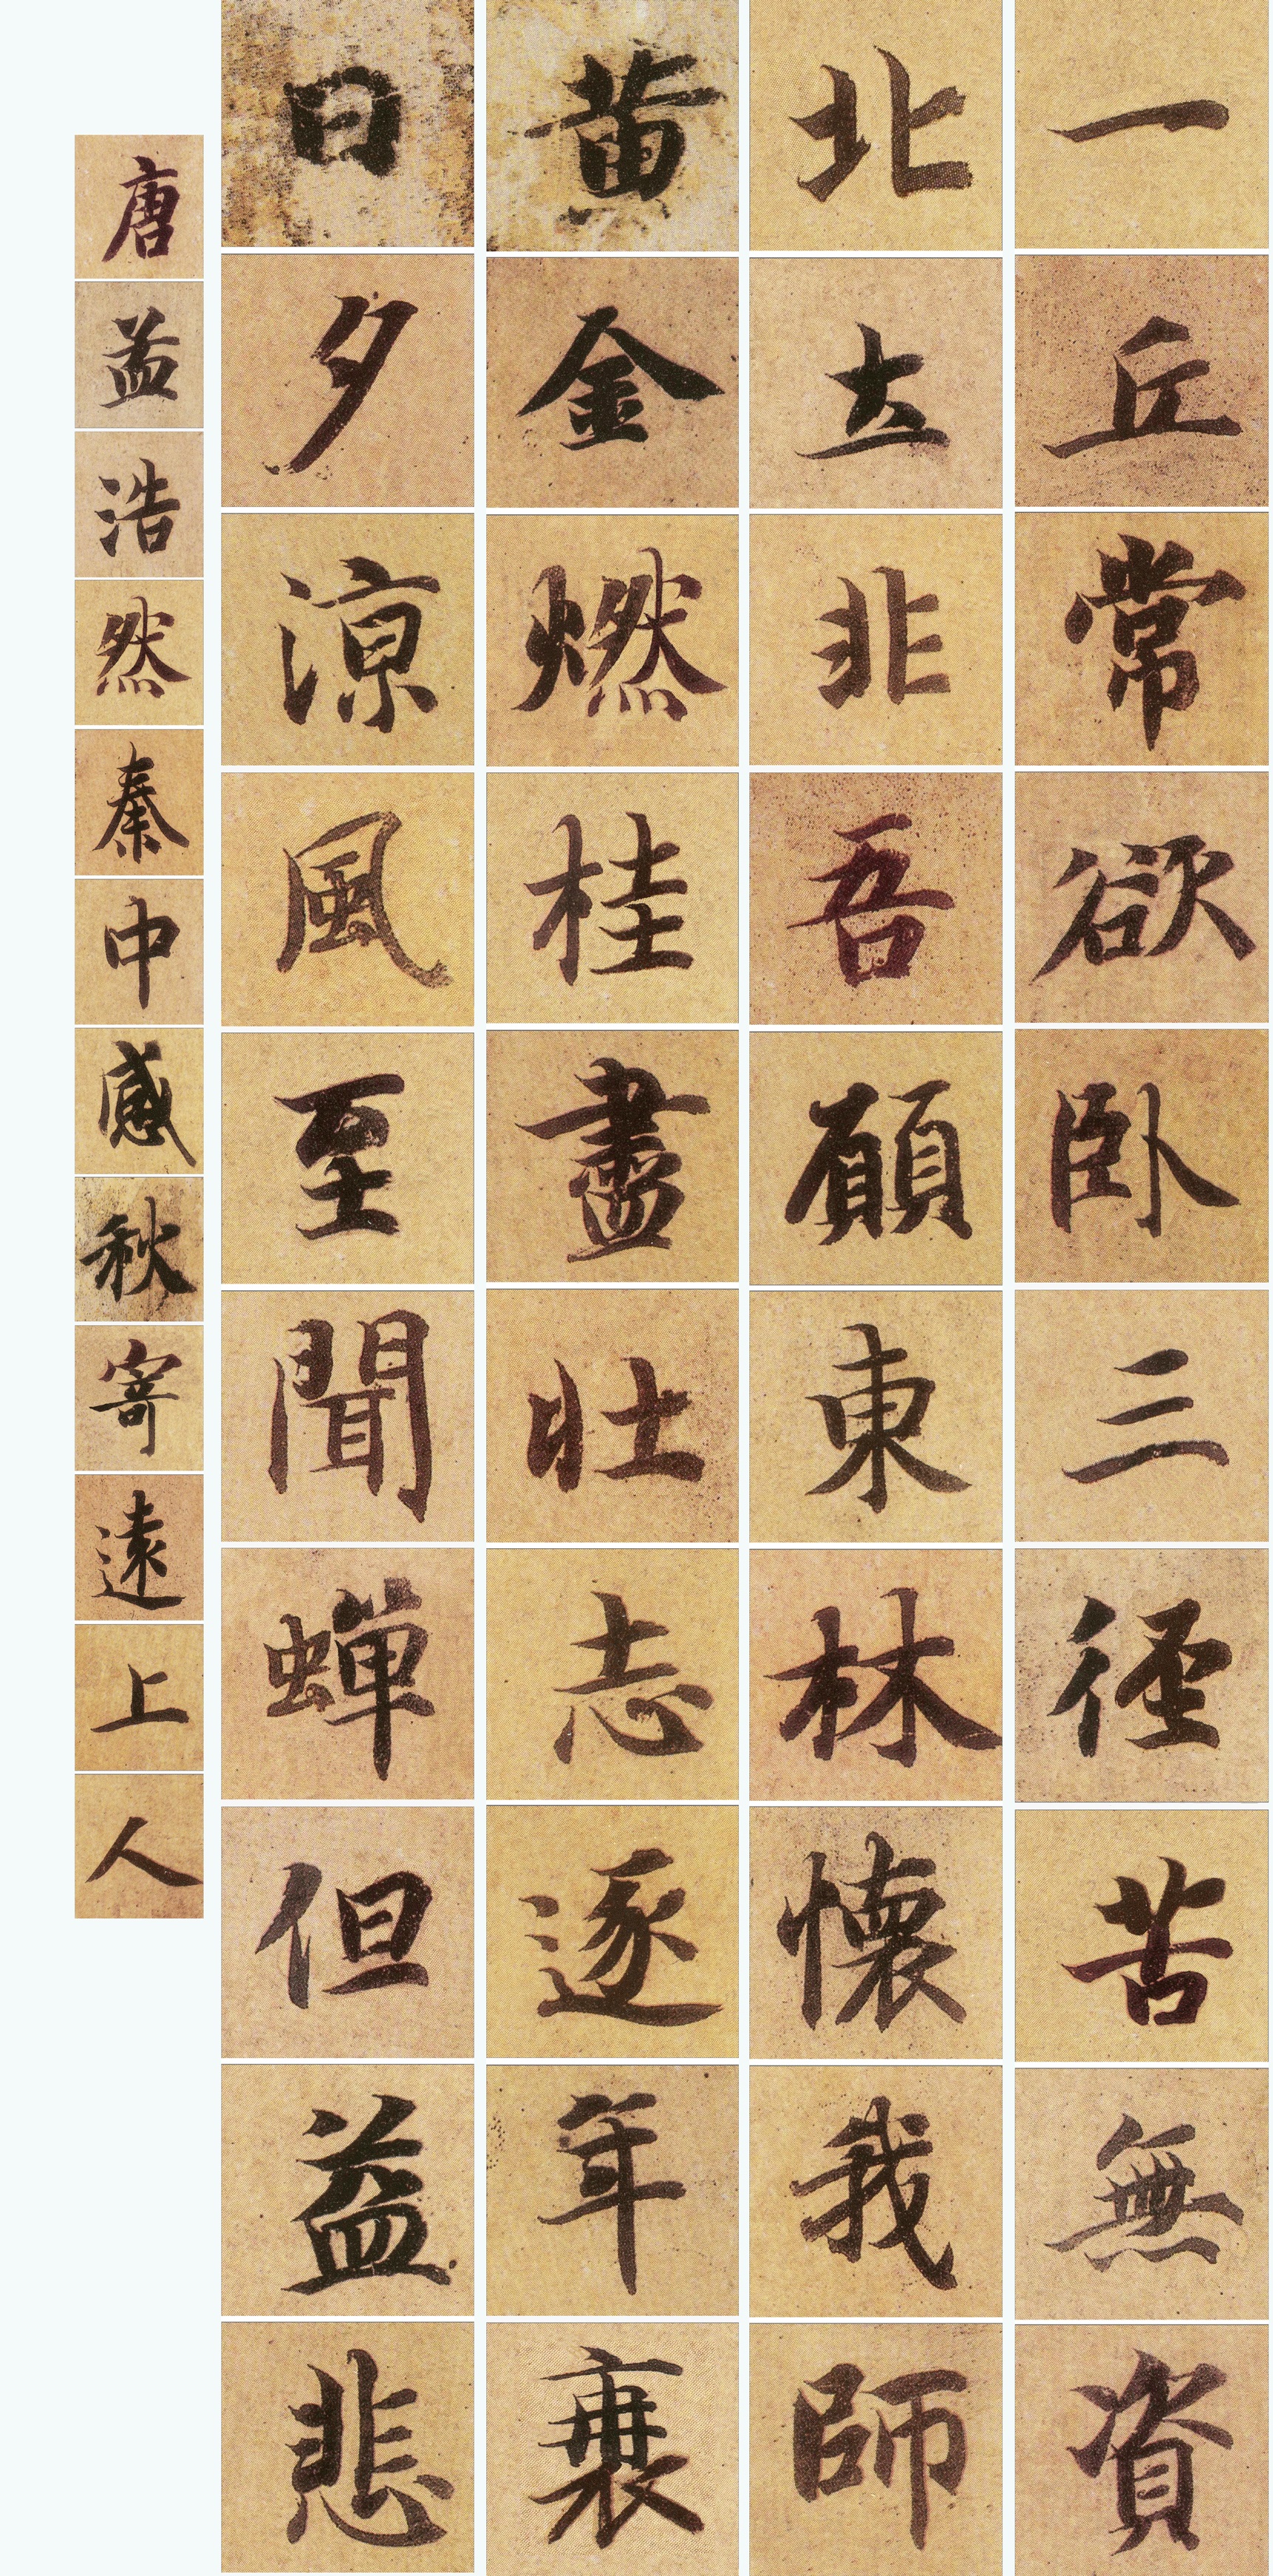 一丘常欲卧三徑苦無資
北土非吾願東林懷我師
黃金燃桂盡壯志逐年衰
日夕涼風至聞蟬但益悲
唐孟浩然秦中感秋寄遠上人